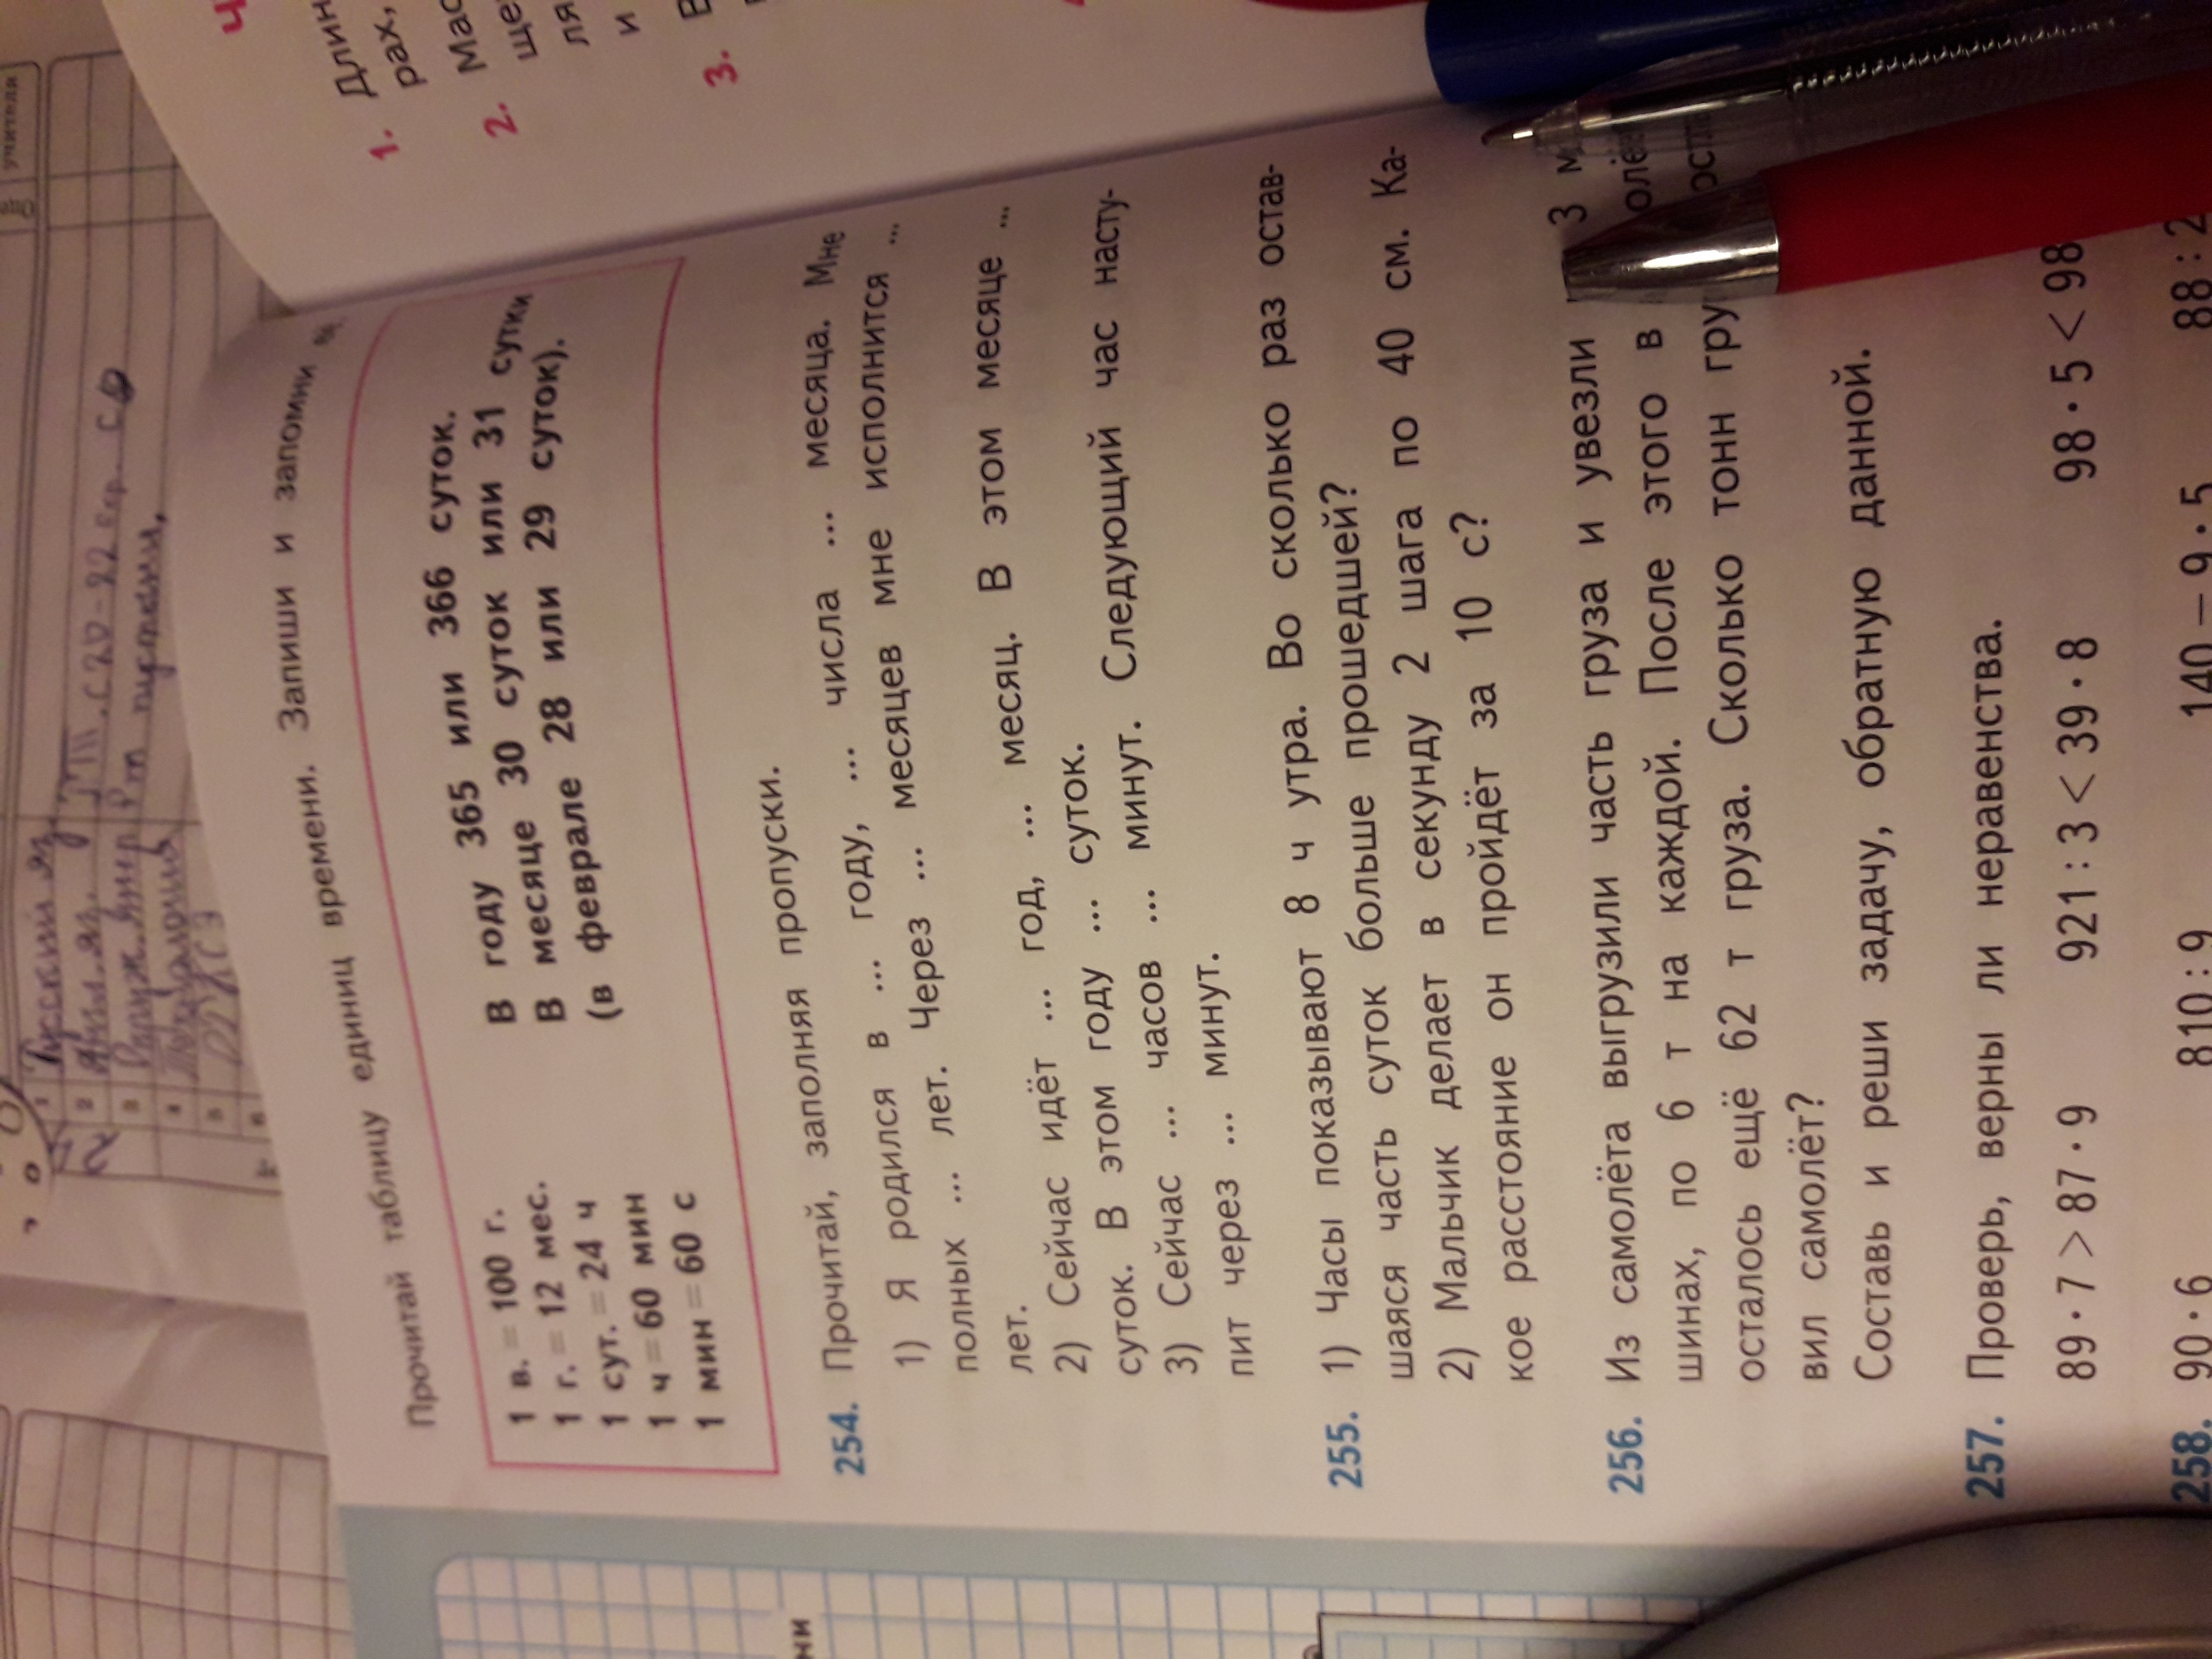 учителя
Прочитай таблицу единиц времени. Запиши и запомни
1 в. = 100 г.
1 г. = 12 мес.
1 сут. = 24 ч
1 ч = 60 мин
1 мин = 60 с
В году 365 или 366 суток.
В месяце 30 суток или 31 сутки
(в феврале 28 или 29 суток).
254. Прочитай, заполняя пропуски.
1) Я родился в ... году, ... числа ... месяца. Мне
полных ... лет. Через ... месяцев мне исполнится ...
лет.
2) Сейчас идёт ... год, ... месяц. В этом месяце ...
суток. В этом году ... суток.
3) Сейчас ... часов ... минут. Следующий час насту-
пит через ... минут.
255. 1) Часы показывают 8 ч утра. Во сколько раз остав-
шаяся часть суток больше прошедшей?
2) Мальчик делает в секунду 2 шага по 40 см. Ка-
кое расстояние он пройдёт за 10 с?
256. Из самолёта выгрузили часть груза и увезли 3 м
шинах, по 6 т на каждой. После этого в олё
осталось ещё 62 т груза. Сколько тонн гру ост
вил самолёт?
Составь и реши задачу, обратную данной.
257. Проверь, верны ли неравенства.
89 · 7 > 87 · 9 921 : 3 < 39 · 8 98 · 5 < 98
258. 90 · 6 810 : 9 140 − 9 · 5 88 : 2
1. Длин
рах,
2. Мас
ще
ля
и
3. В
ни